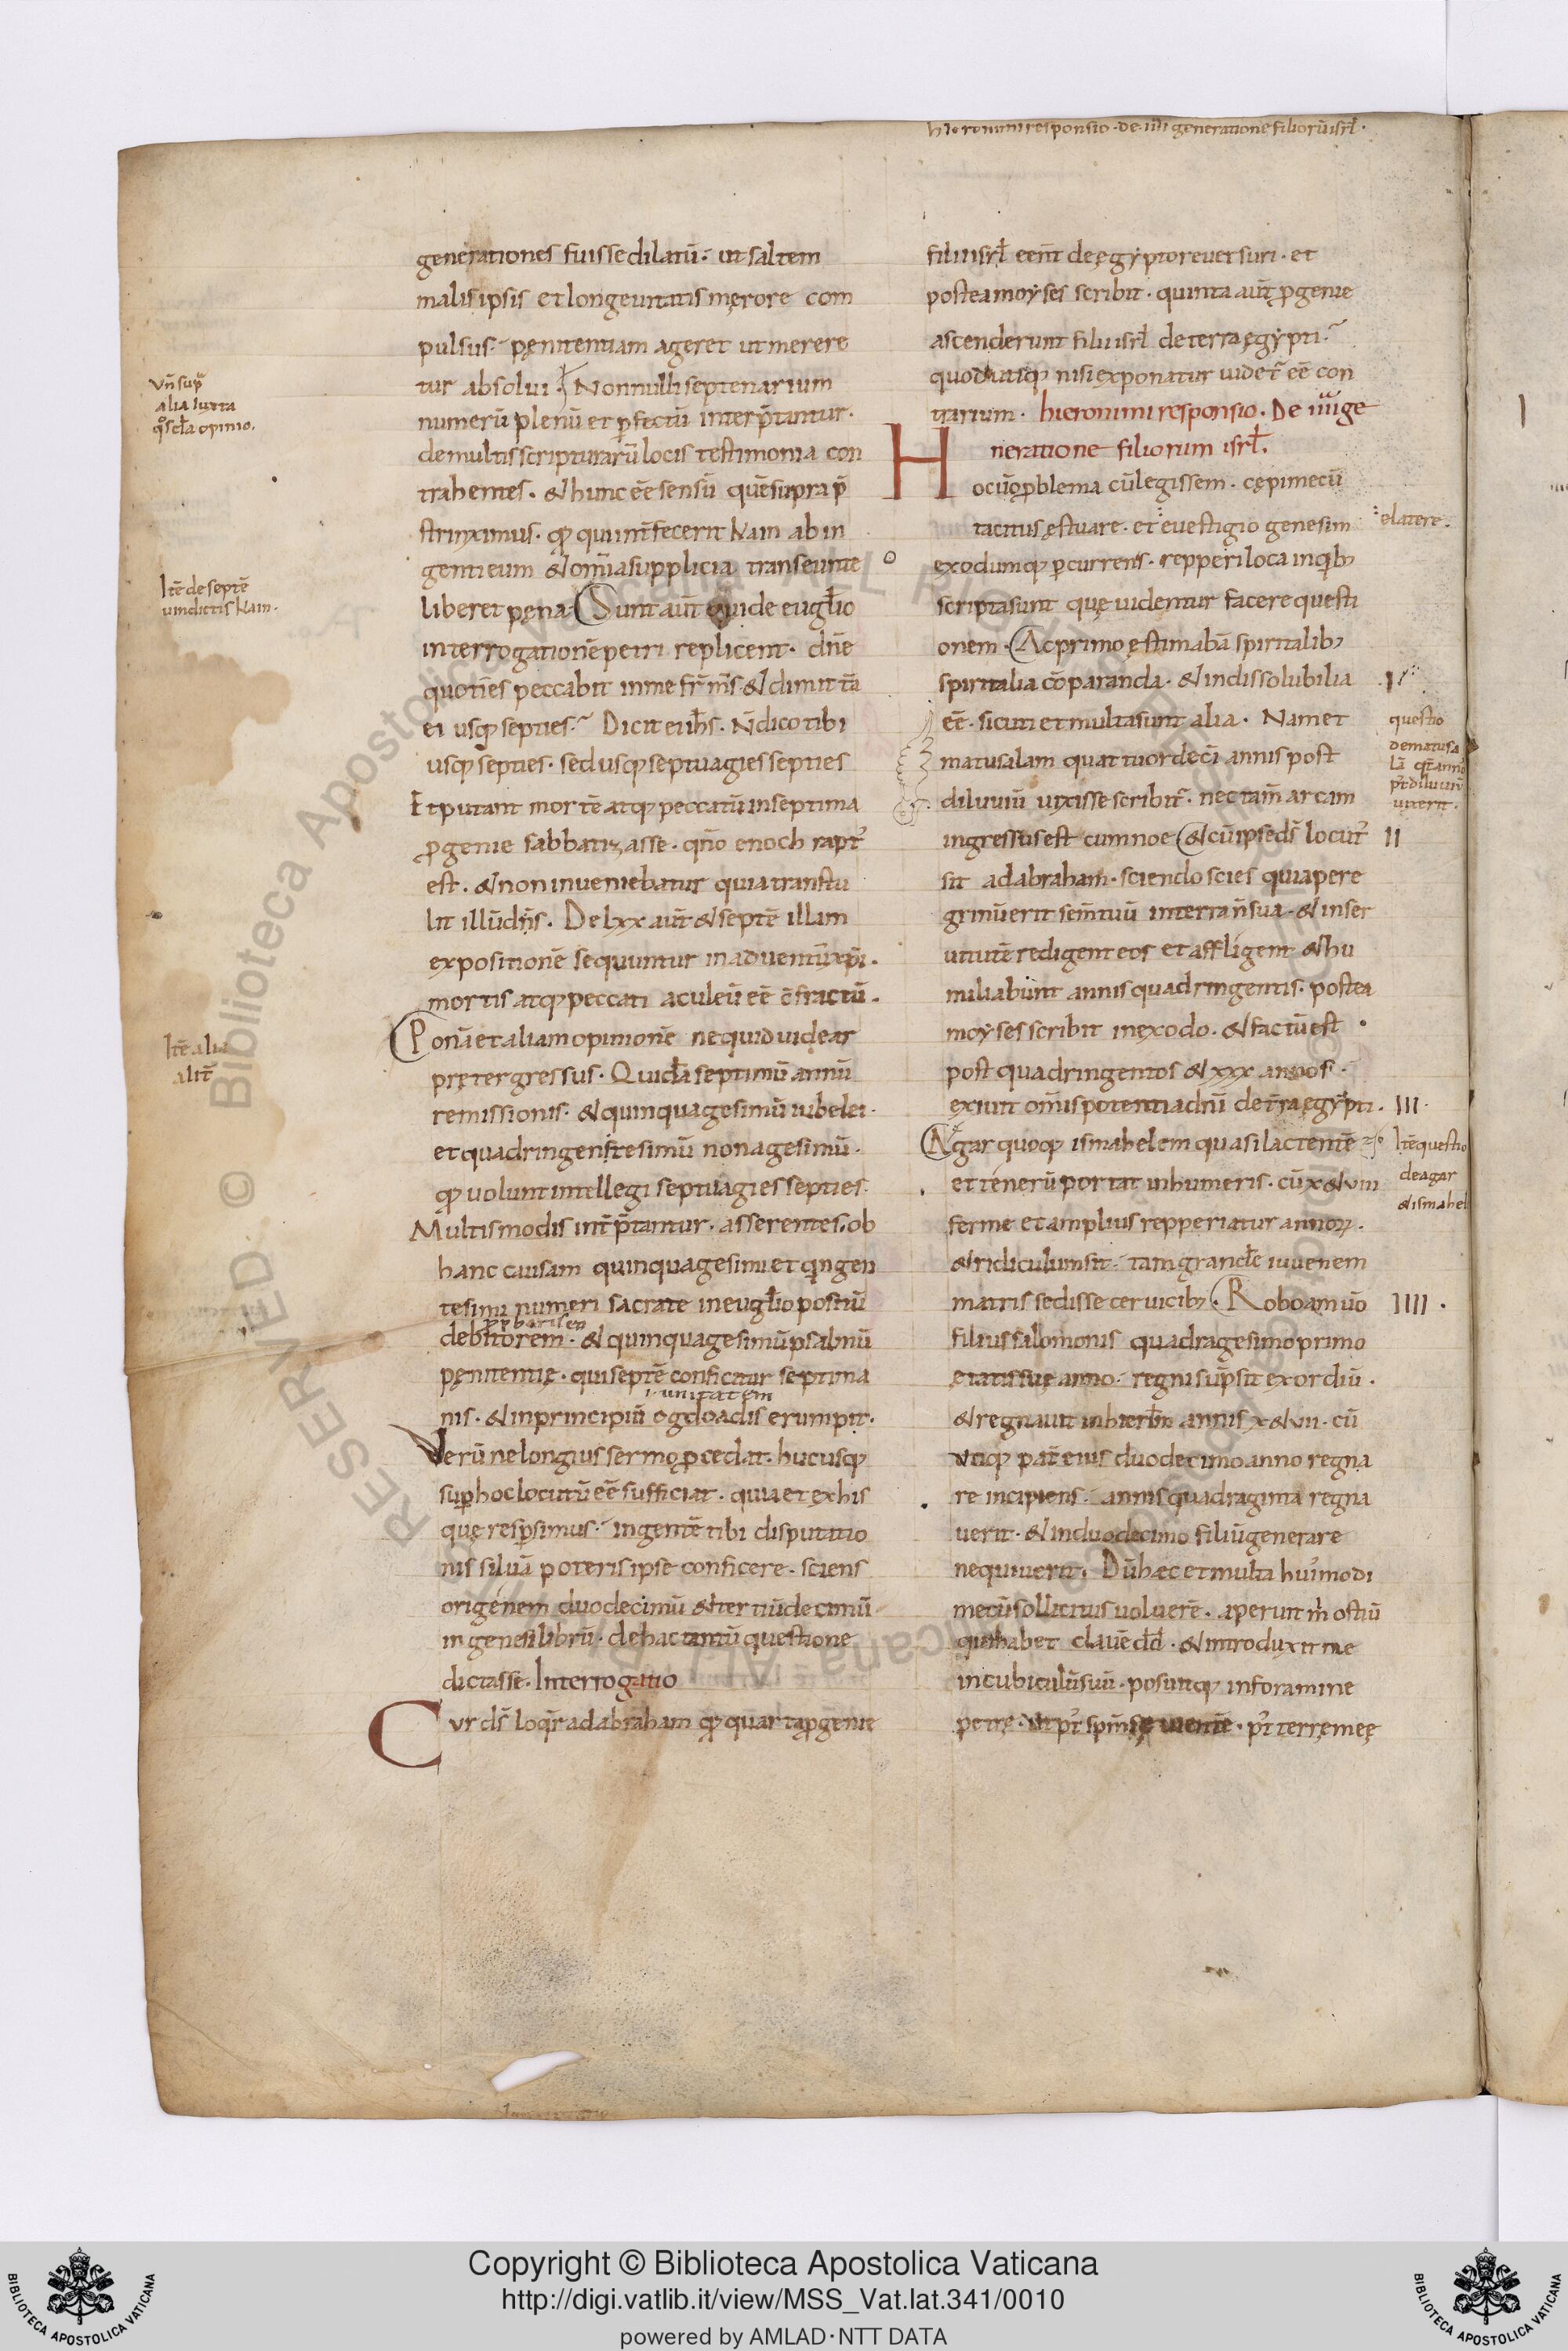 hieronimi responsio · de · iiii generatione filiorū isrł ·
generationes fuisse dilatū · ut saltem
malis ipsis et longeuitatis męrore com
pulsus · pęnitentiam ageret ut merere
tur absolui · Nonnulli septenarium
numerū plenū et ꝑfectū interp̄tantur ·
de multis scripturarū locis testimonia con
trahentes · & hunc eē sensū quē supra p̄
strinximus · qđ qui int̄fecerit kain ab in
genti eum & om̄ia supplicia transeunte
liberet pęna · Sunt aut̄ qui de eugłio
interrogationē petri replicent · dn̄e
quotiēs peccabit in me fr̄ m̄s · & dimittā
ei usq; septies · Dicit ei ih̄s · N̄ dico tibi
usq; septies · sed usq; septuagies septies
Et putant mortē atq; peccatū in septima
ꝓgenie sabbatizasse · qn̄o enoch rapt᷒
est · & non inueniebatur quia transtu
lit illū dn̄s · De lxx aut̄ & septē illam
expositionē sequuntur in aduentū xp̄i ·
mortis atq; peccati aculeū eē c̄fractū ·
Ponā et aliam opinionē ne quid uidear
pręter gressus · Quidā septimū annū
remissionis · & quinquagesimū iubelei ·
et quadringentesimū nonagesimū ·
qđ uolunt intellegi septuagies septies ·
Multis modis int̄p̄tantur · asserentes · ob
hanc causam quinquagesimi et qingen
tesimi numeri sacrate in eugłio positū
debitorem · & quinquagesimū psalmū
pęnitentię · qui septē conficitur septima
i · unitatem
nis · & in principiū ogdoadis erumpit ·
Verū ne longius sermo ꝓcedat · hucusq;
suꝑ hoc locutū eē sufficiat · quia et ex his
quę respersimus · ingentē tibi disputatio
nis siluā poteris ipse conficere · sciens
origenem duodecimū & tertiūdecimū
in genesi librū · de hac tantū questione
dictasse · Interrogatio
Cur d̄s loqt̄ ad abraham qđ quarta ꝓgenie
Vn̄ sup̄
alia iuxta
q̊sdā opinio.
Itē de septē
uindictis kain ·
Itē alia
alit̄
filii isrł eēnt de ęgypto reuersuri · et
postea moyses scribit · quinta aut̄ ꝓgenie
ascenderunt filii isrł de terra ęgypti ·
quod utiq; nisi exponatur uidet̄ eē con
trarium · hieronimi responsio · De iiii ge
neratione filiorum isrł.
Hoc uō ꝓblema cū legissem · cępi mecū
tacitus ęstuare · et e uestigio genesim
exodumq; ꝑcurrens · repperi loca in qib;
scripta sunt quę uidentur facere questi
onem · Ac primo ęstimabā spiritalib;
spiritalia cōparanda · & indissolubilia
eē · sicuti et multa sunt alia · Nam et
matusalam quattuordeci annis post
diluuiū uixisse scribit̄ · nec tam̄ arcam
ingressus est cum noe & cū ipse d̄s locut᷒
sit ad abraham · sciendo scies quia pere
grinū erit sem̄ tuū in terra n̄ sua · & in ser
uitutē redigent eos et affligent & hu
miliabunt annis quadringentis · postea
moyses scribit in exodo · & factū est ·
post quadringentos & xxx annos ·
exiuit om̄is potentia dn̄i de t̄ra ęgypti ·
Agar quoq; ismahelem quasi lactentē
et tenerū portat in humeris · cū x & viii
ferme et amplius repperiatur annoꝝ ·
& ridiculum sit · tam grandē iuuenem
matris sedisse ceruicib; · Roboam uō
filius salomonis quadragesimo primo
ętatis suę anno · regni sūpsit exordiū ·
& regnauit in hierłm annis x & vii · cū
utiq; pat̄ eius duodecimo anno regna
re incipiens · annis quadraginta regna
uerit · & in duodecimo filiū generare
nequiuerit · Dū hęc et multa hui᷒modi
mecū sollicitus uoluerē · aperuit m̄ ostiū
qui habet clauē dd̄ · & introduxit me
in cubiculū suū · posuitq; in foramine
petrę · ut p᷒t sp̄m sęuientē · p᷒t terręmeę
elatere ·
I
questio
de matusa
lā qt̄ annis
p᷒t diluuiū
uixerit ·
II
III ·
Itē questio
de agar
& ismahel
IIII ·
Copyright © Biblioteca Apostolica Vaticana
http://digi.vatlib.it/view/MSS_Vat.lat.341/0010
powered by AMLAD·NTT DATA
BIBLIOTECA APOSTOLICA VATICANA
BIBLIOTECA APOSTOLICA VATICANA